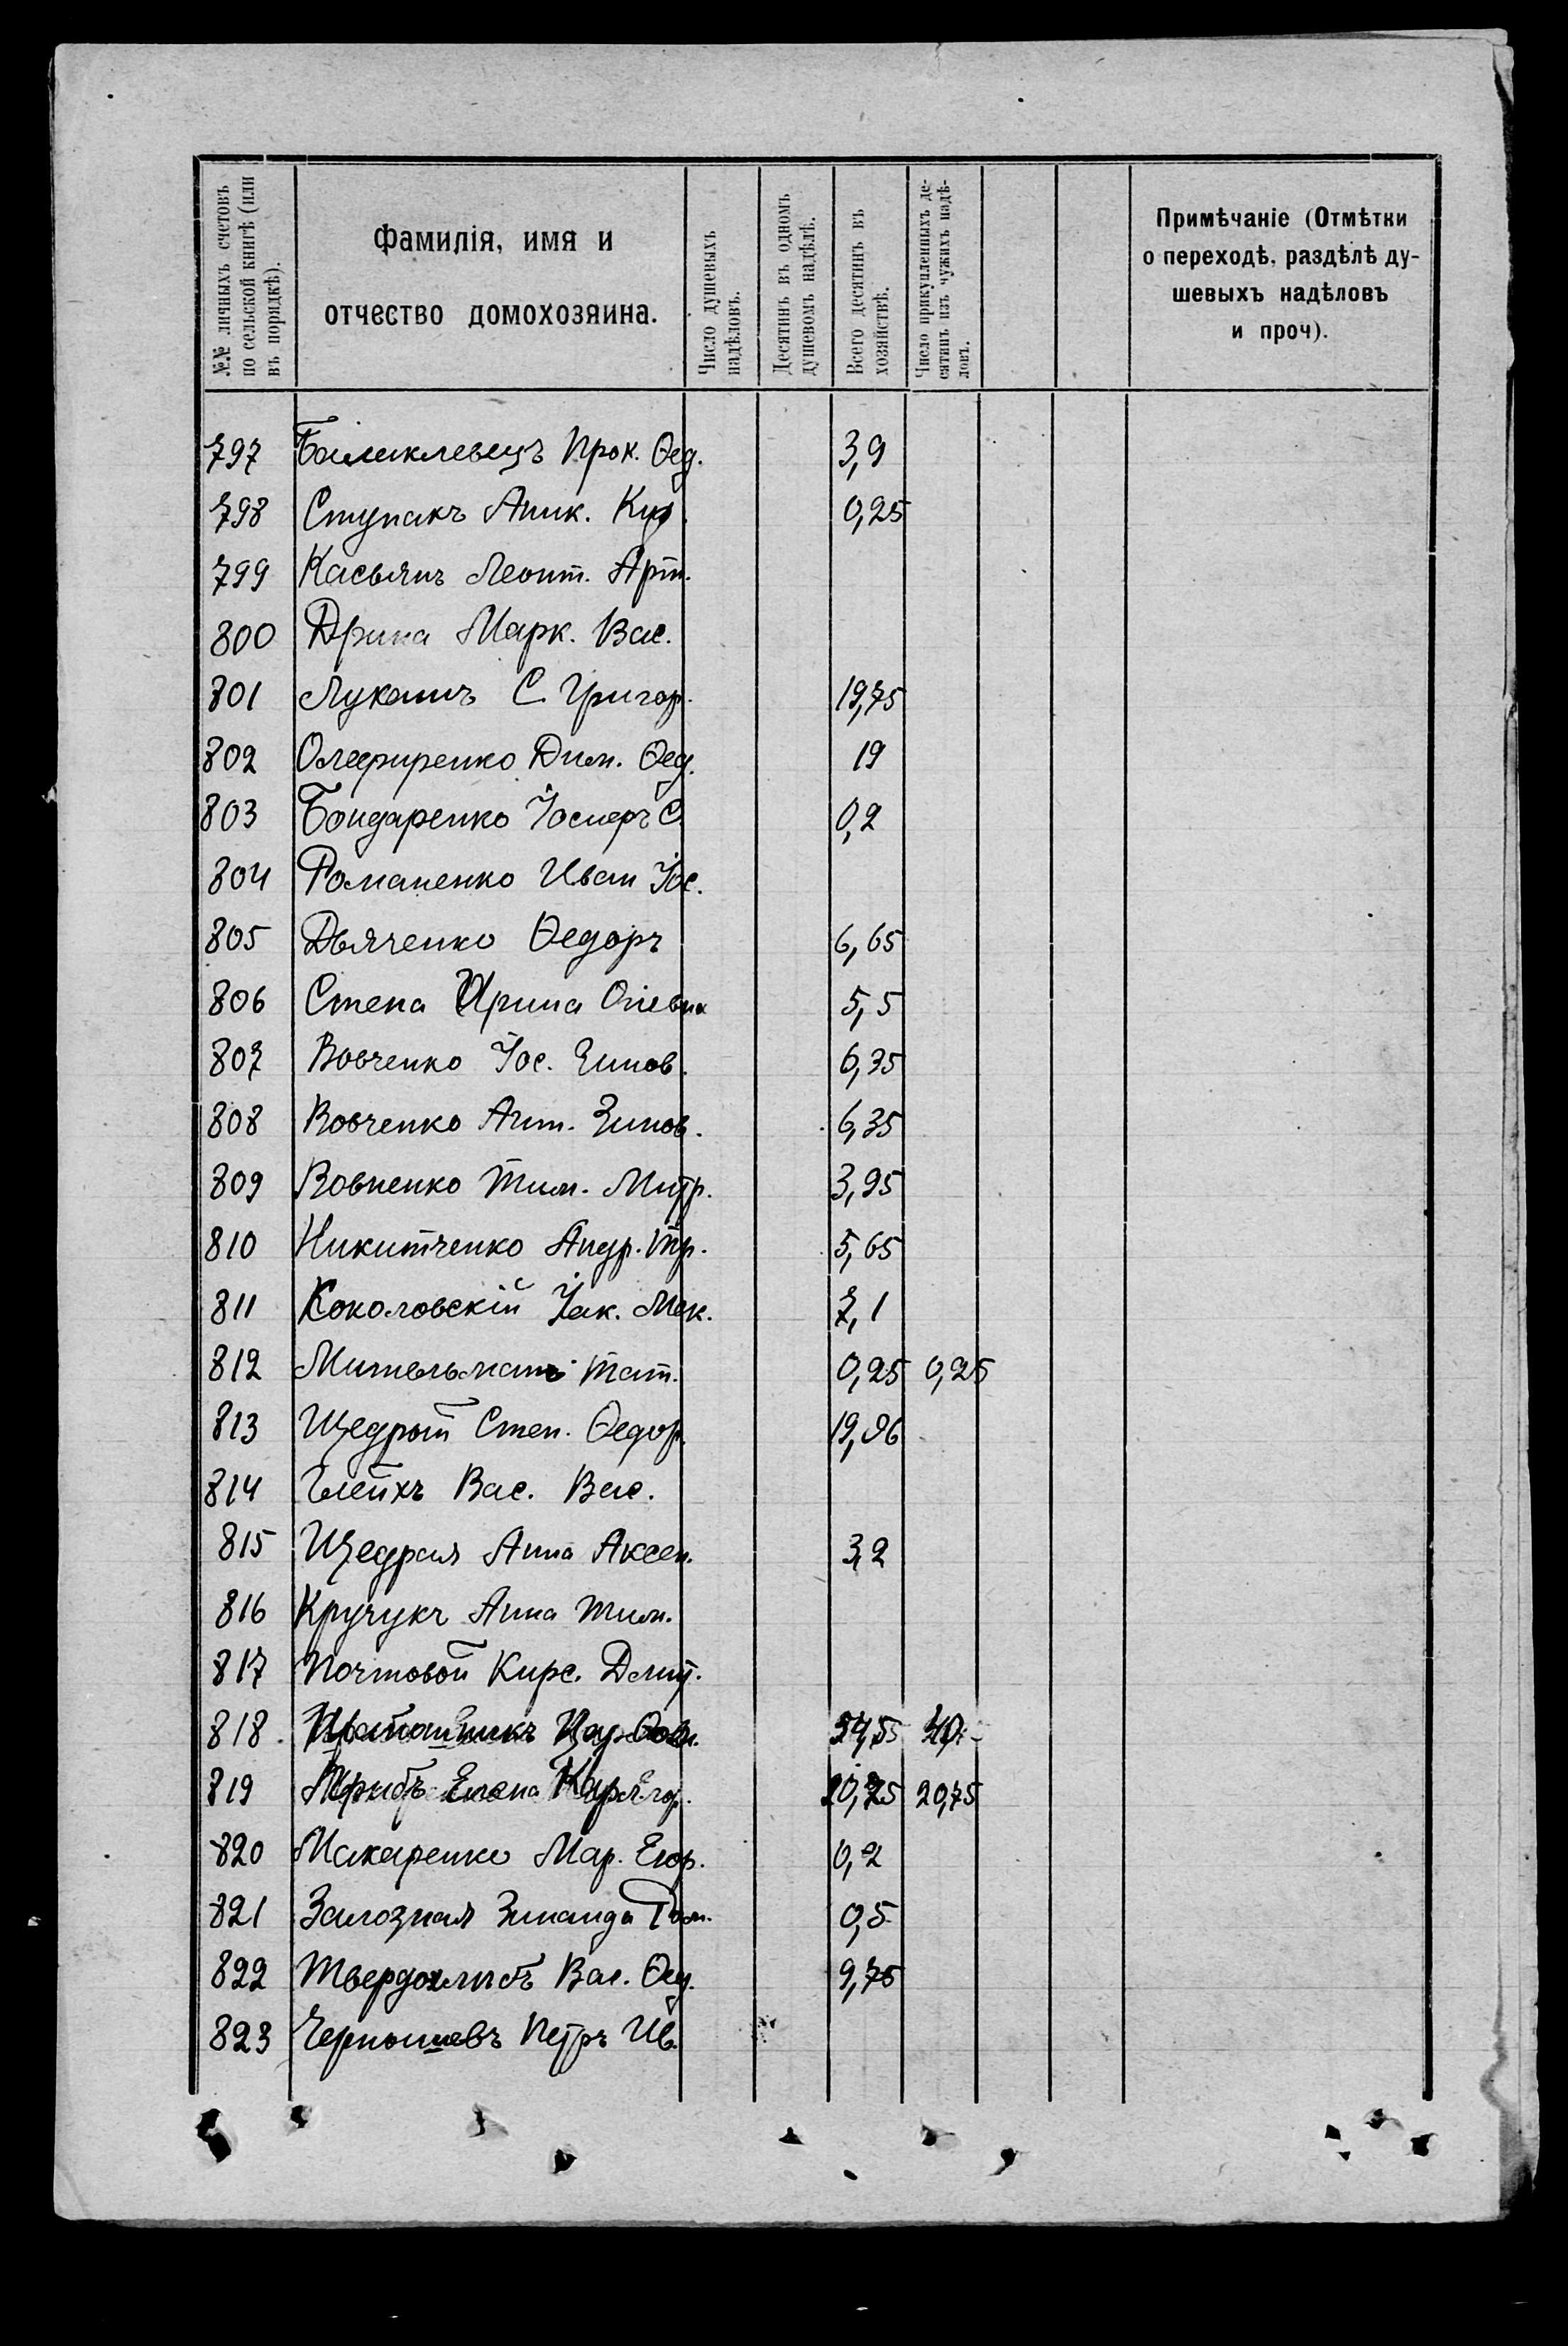 №№ личныхъ счетовъ по сельской книгѣ (или въ порядкѣ).
Фамилія, имя и
отчество домохозяина.
Число душевыхъ надѣловъ.
Десятинъ въ одномъ душевомъ надѣлѣ.
Всего десятинъ въ хозяйствѣ.
Число прикупленныхъ десятинъ изъ чужихъ надѣловъ.
Примѣчаніе (Отмѣтки
о переходѣ, раздѣлѣ ду-
шевыхъ надѣловъ
и проч).
797 Балаклевецъ Прок. Ѳед. 3,9
798 Ступакъ Аник. 0,25
799 Касьянъ Леонт. Арт.
800 Дрига Марк. Вас.
801 Лукашъ С. Григор. 19,75
802 Олефиренко Дим. Ѳед. 19
803 Бондаренко Іосифъ С. 0,2
804 Романенко Иван Іос.
805 Дьяченко Ѳедоръ 6,65
806 Стена Ирина 5,5
807 Вовченко Іос. Зинов. 6,35
808 Вовченко Ант. Зинов. 6,35
809 Вовненко Тим. Митр. 3,95
810 Никитченко Андр. Тр. 5,65
811 Коколовскій Іак. Мак. 7,1
812 Мительманъ Тат. 0,25 0,25
813 Щедрый Степ. Ѳедор. 19,96
814 Глейхъ Вас. Вас.
815 Щедрая Анна Аксен. 3,2
816 Кручукъ Анна Тим.
817 Почтовой Кирс. Дмит.
818
819 Елена 20,75 20,75
820 Макаренко Мар. Егор. 0,2
821 Залозная Зинаида Ром. 0,5
822 Твердохлибъ Вас. Ѳед. 9,75
823 Чернышевъ Петръ Ив.